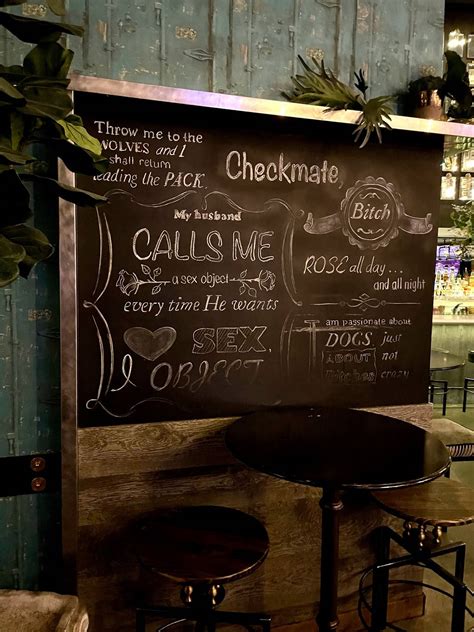 Throw me to the
WOLVES and I
shall return
leading the PACK.
My husband
CALLS ME
a sex object
every time He wants
SEX,
I OBJECT
Checkmate,
Bitch
ROSE all day...
and all night
I am passionate about
DOGS just
ABOUT not
crazy